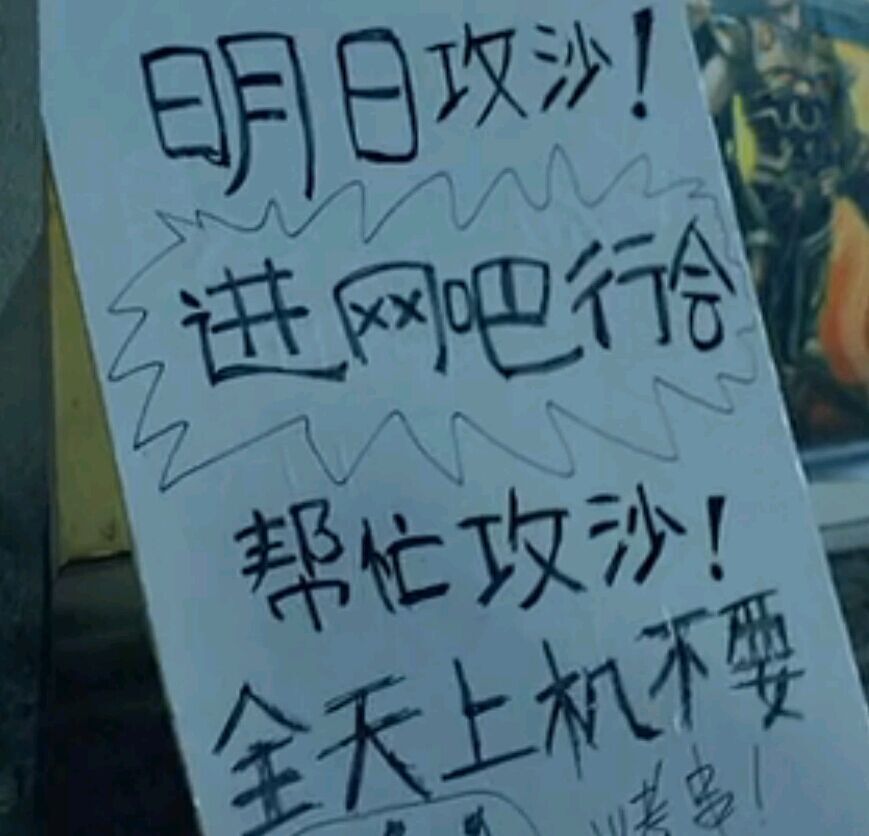 明日攻沙！
进网吧行会
帮忙攻沙！
全天上机不要